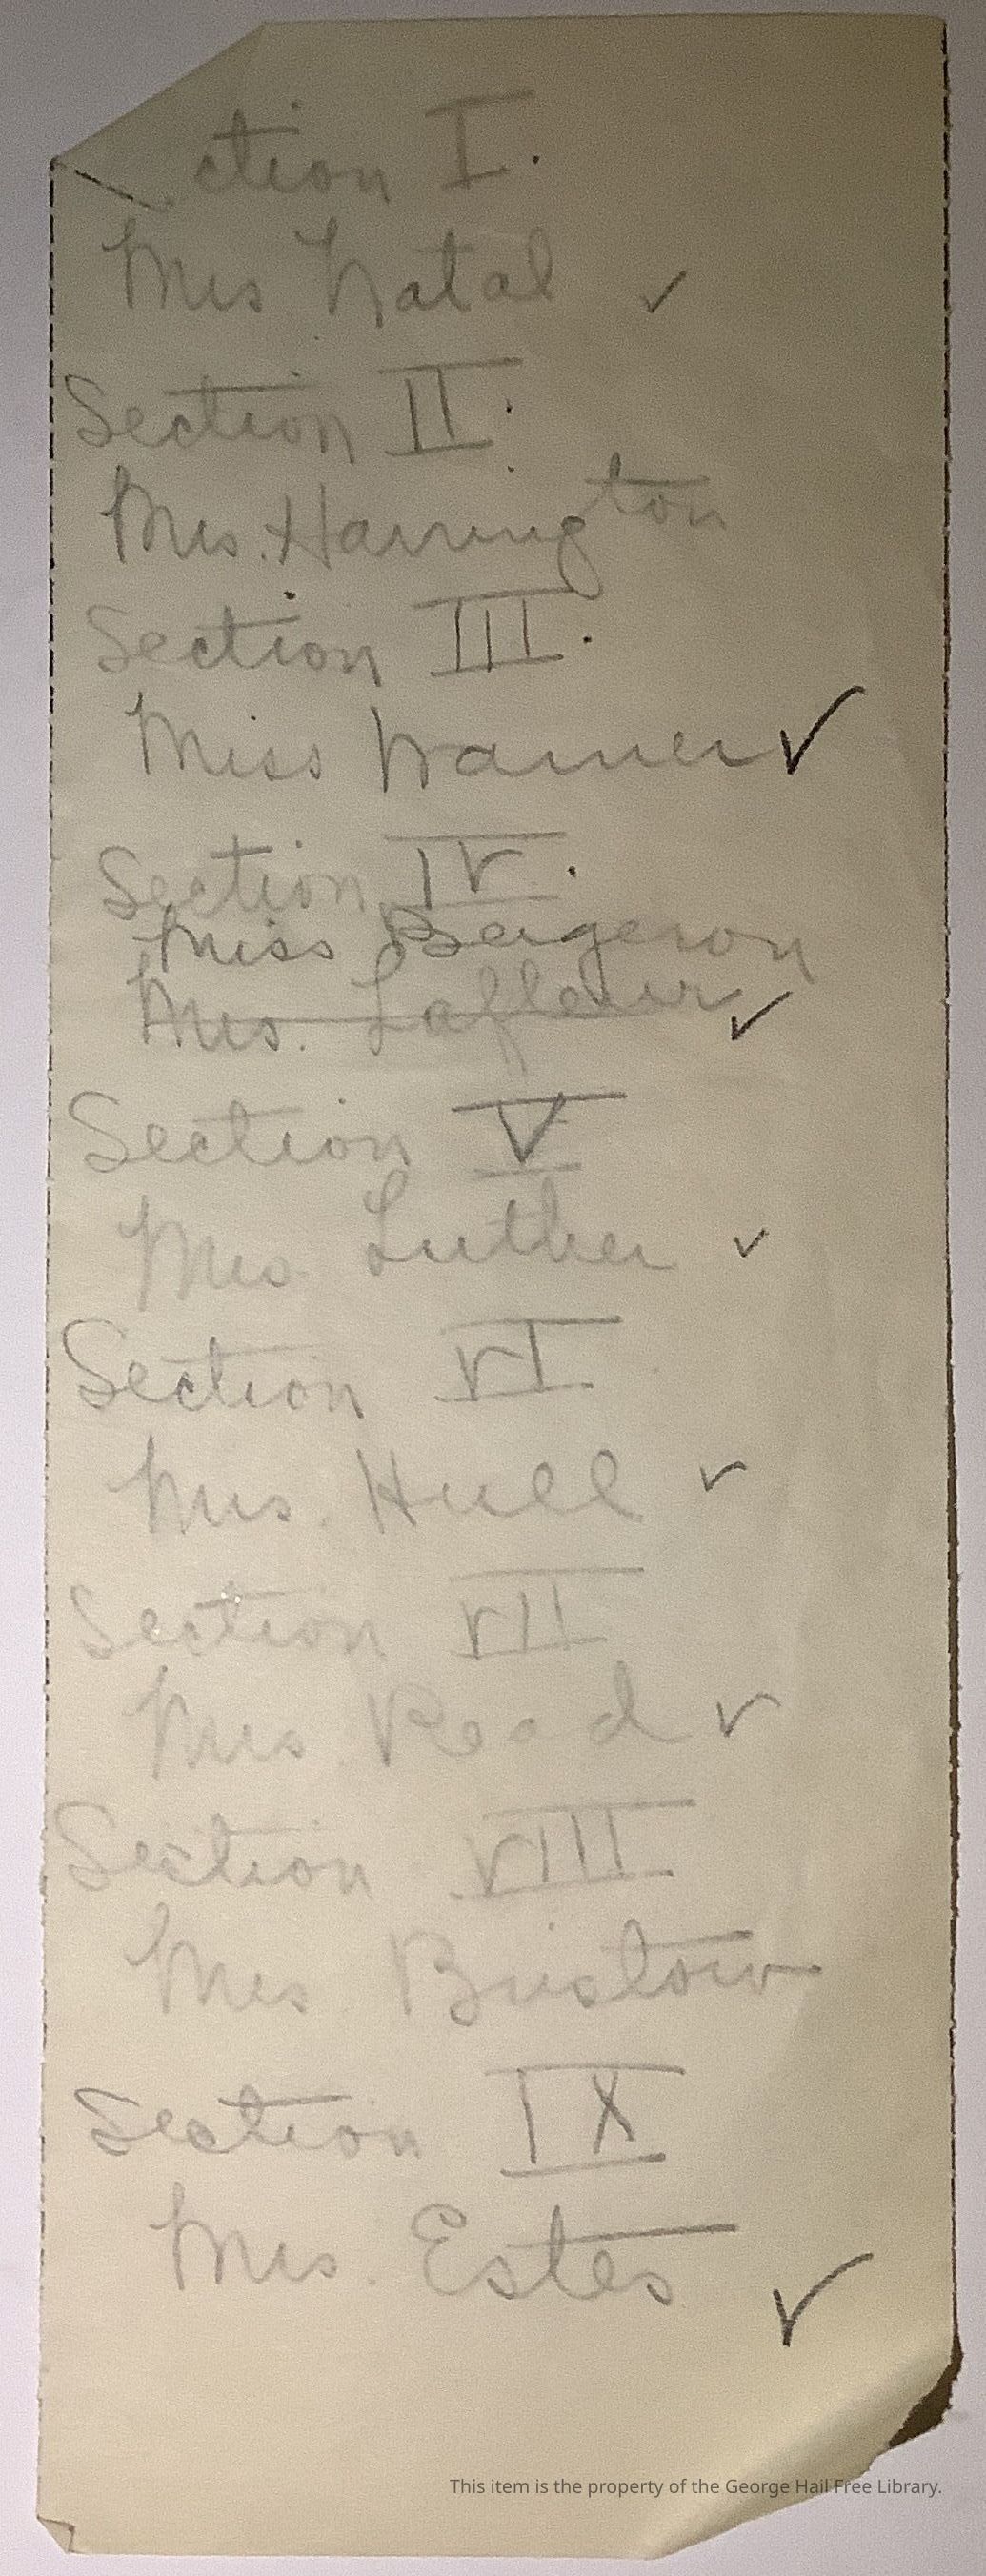 ction I.
Mrs Natal ✓
Section II.
Mrs. Harrington
Section III.
Miss Warner ✓
Section IV.
Miss Bergeron
Mrs. Lafleur ✓
Section V
Mrs Luther ✓
Section VI
Mrs. Hull ✓
Section VII
Mrs. Read ✓
Section VIII
Mrs. Bristow
Section IX
Mrs. Estes ✓
This item is the property of the George Hail Free Library.